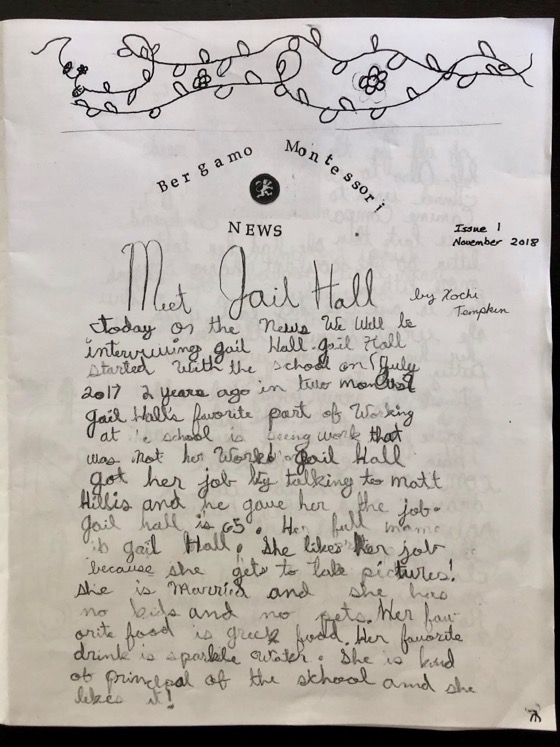 Bergamo Montessori
NEWS
Issue 1
November 2018
Meet Gail Hall
by Xochi
Tempkin
today on the News We Well be
interviuing gail Hall. gail Hall
started With the school on July
2017 2 years ago in two months
gail Hall's favorite part of Working
at school is seeing work that
was not her Work. Gail Hall
got her job by talking to matt
Hillis and he gave her the job.
gail hall is 65. Her full mame
is gail Hall. She likes her job
because she gets to take pictures!
She is Married and she has
no kids and no pets. Her fav-
orite food is greek food. Her favorite
drink is sparkle water. She is kind
of principal of the skhool amd she
likes it!